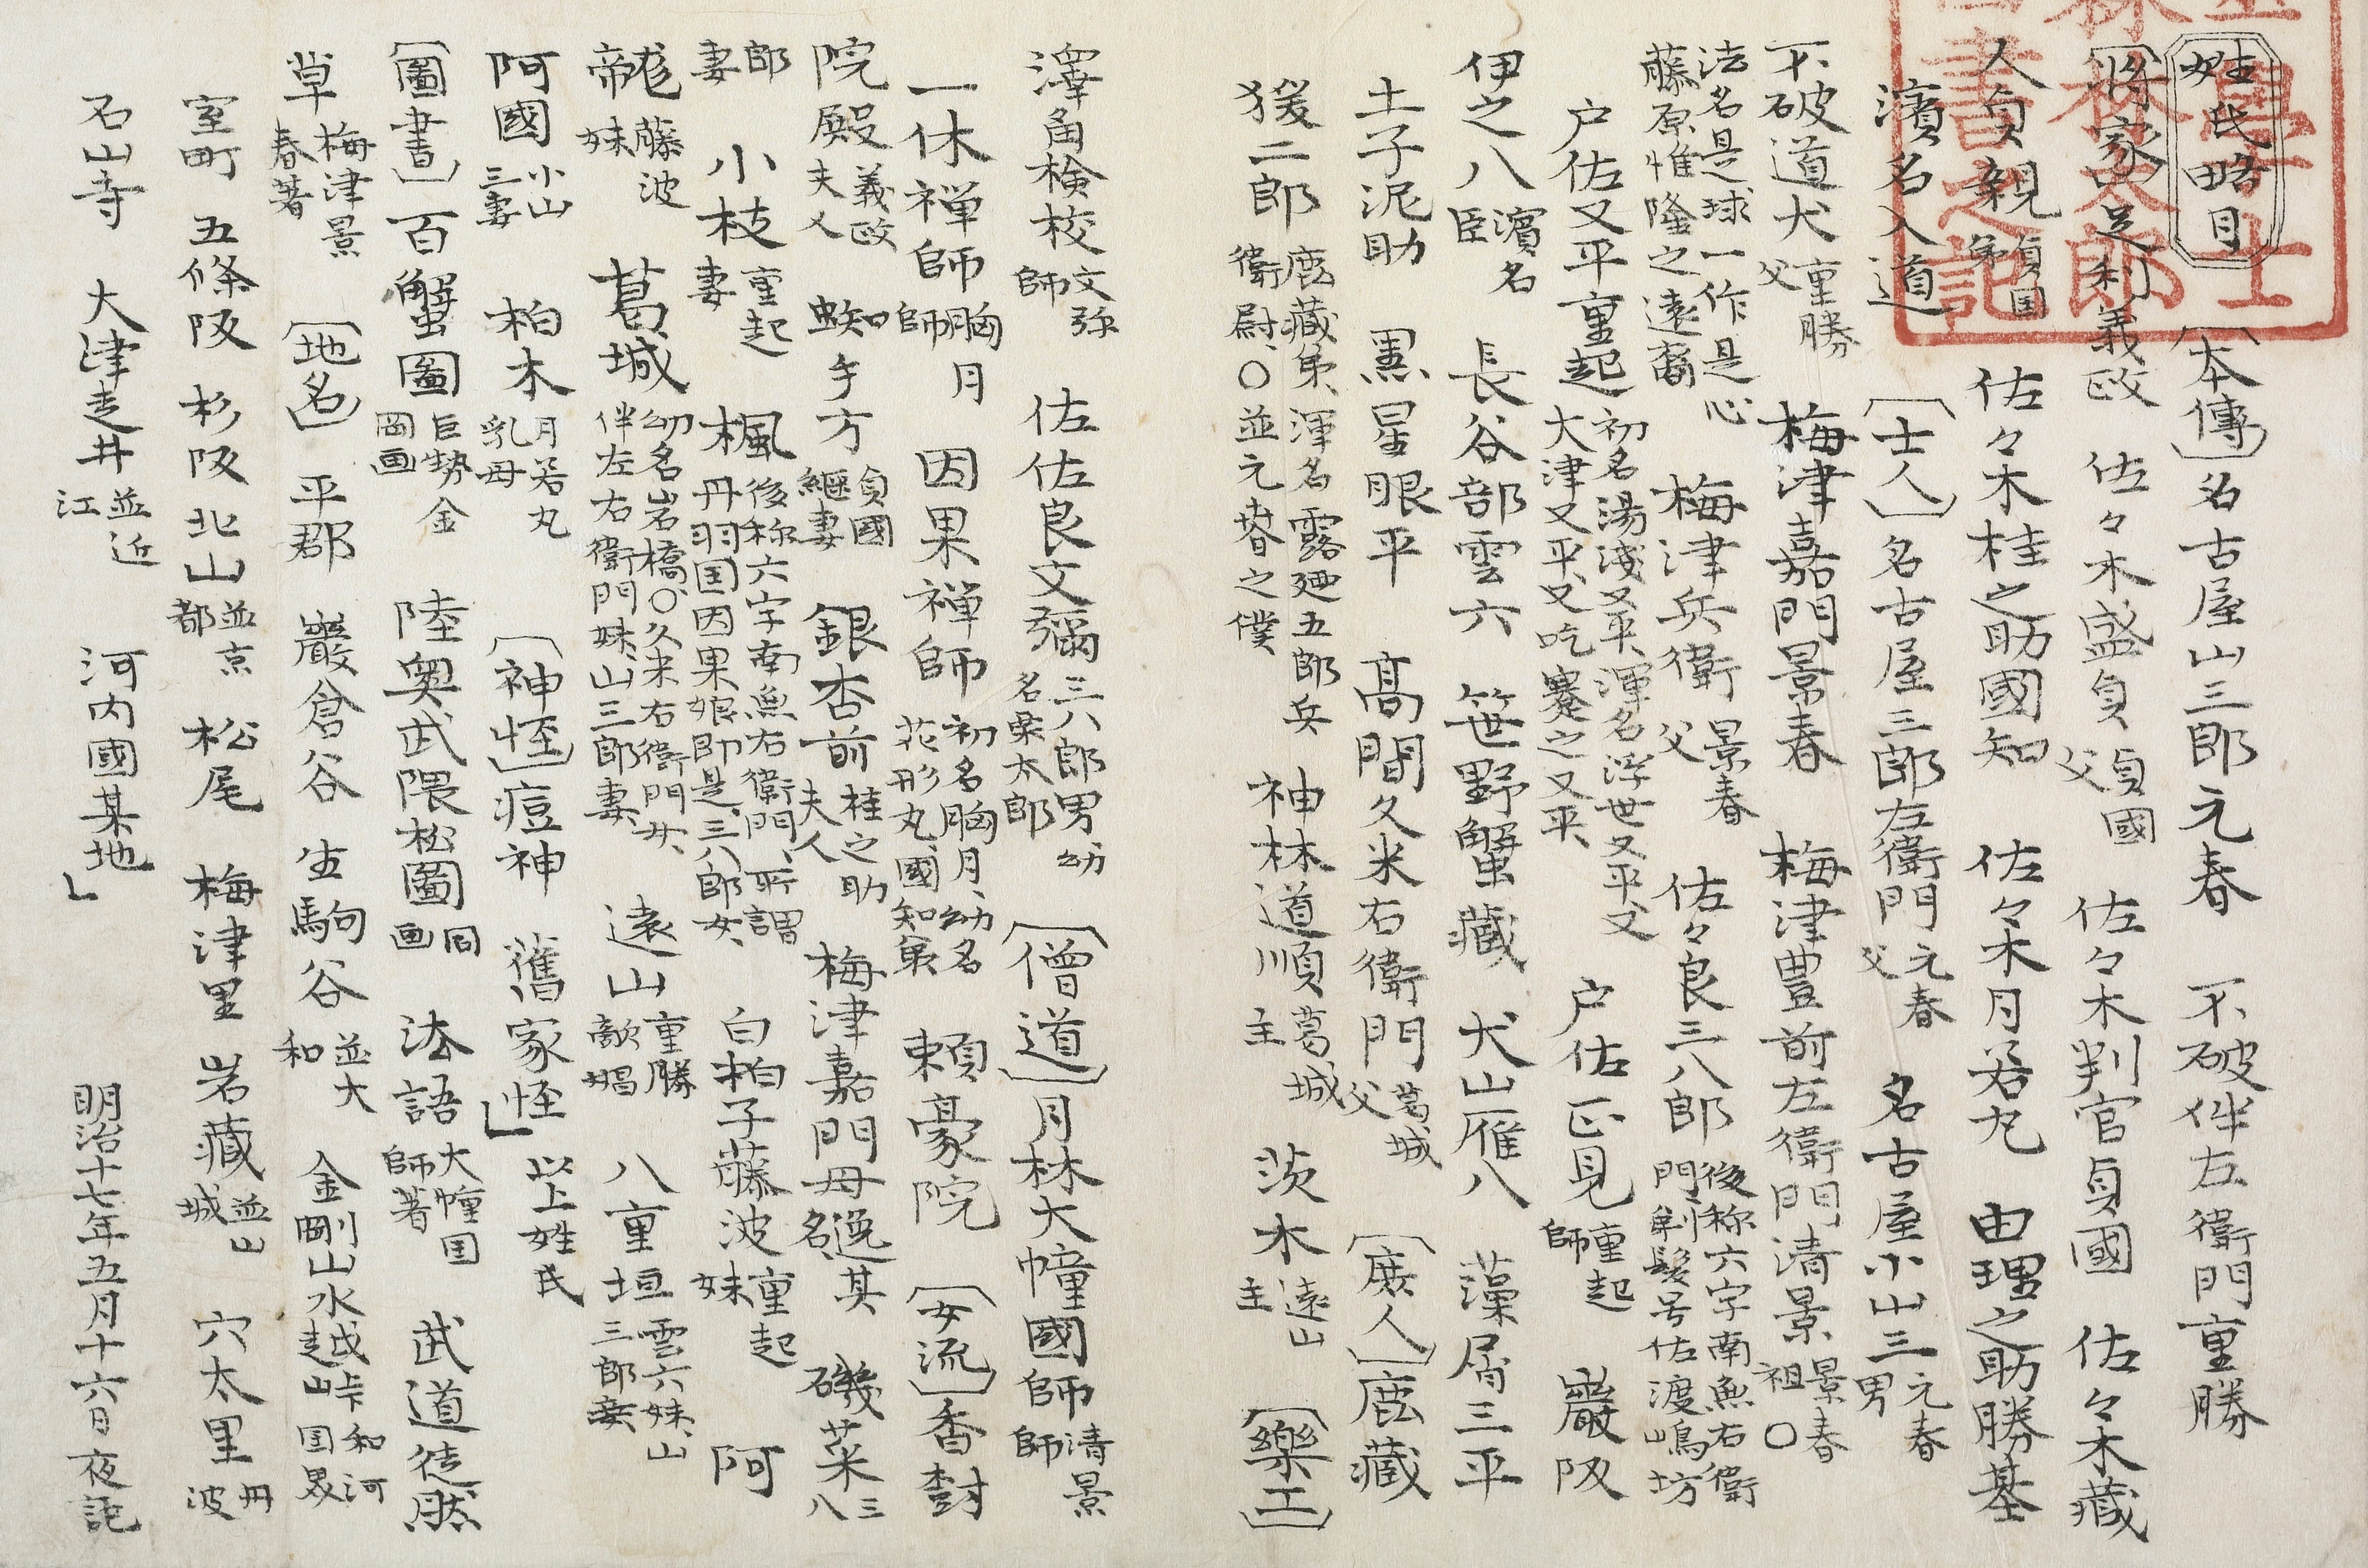 姓氏略目
〔本傳〕名古屋山三郎元春　不破伴左衛門重勝
〔將家〕足利義政　佐々木盛貞貞國父　佐々木判官貞國　佐々木藏
人貞親貞国弟　佐々木桂之助國知　佐々木月若丸　由理之助勝基
濱名入道　〔士人〕名古屋三郎左衛門元春父　名古屋小山三元春男
不破道犬重勝父　梅津嘉門景春　梅津豊前左衛門清景景春祖〇
法名是球一作是心藤原惟隆之遠裔　梅津兵衛景春父　佐々良三八郎後称六字南無右衛門剃髮号佐渡嶋坊
戸佐又平重起初名湯浅又平、渾名浮世又平又大津又平、又吃蹇之又平、　戸佐正見重起師　巖阪
伊之八濱名臣　長谷部雲六　笹野蟹藏　犬山雁八　藻屑三平
土子泥助　黒星眼平　髙間久米右衛門葛城父　〔庶人〕鹿藏
猨二郎鹿藏弟、渾名露廼五郎兵衛尉、〇並元春之僕　神林道順葛城主　茨木遠山主　〔樂工〕
澤角檢校文弥師　佐佐良文彌三八郎男幼名栗太郎　〔僧道〕月林大幢國師清景師
一休禅師胸月師　因果禅師初名胸月、幼名花形丸、國知弟　頼豪院　〔女流〕香封
院殿義政夫人　蜘手方貞國繼妻　銀杏前桂之助夫人　梅津嘉門母逸其名　磯菜三八
郎妻　小枝重起妻　楓後称六字南無右衛門、所謂丹羽国因果娘即是、三八郎女、　白柏子藤波重起妹　阿
龍藤波妹　葛城幼名岩橋、〇久米右衛門女、伴左右衛門妹、山三郎妻、　遠山重勝敵娼　八重垣雲六妹、山三郎妾
阿國小山三妻　柏木月若丸乳母　〔神怪〕痘神　舊家怪」　以上姓氏
〔圖書〕百蟹圖巨勢金岡画　陸奥武隈松圖同画　法語大幢国師著　武道徒然
草梅津景春著　〔地名〕平郡　巖倉谷　生駒谷並大和　金剛山水越峠和河国界
室町　五條阪　杉阪　北山並京都　松尾　梅津里　岩藏並山城　穴太里丹波
石山寺　大津走井並近江　河内國某地」　明治十七年五月十六日夜記